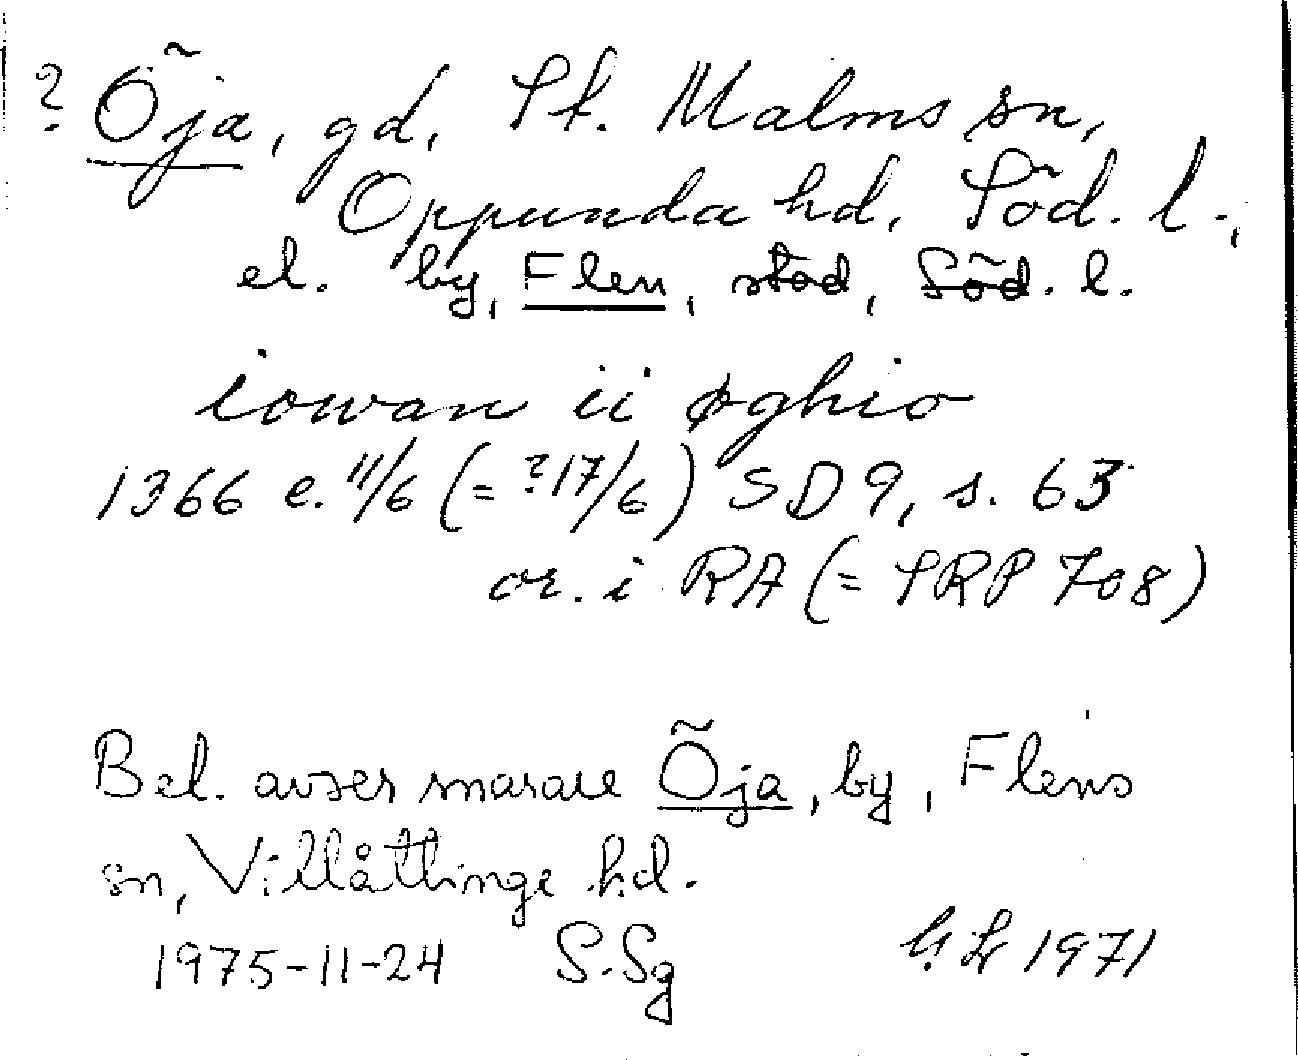 ? Öja, gd, St. Malms sn,
Oppunda hd, Söd. l.,
el. by, Flen, stad, Söd. l.
iowan ii øghio
1366 e. 11/6 (= ?17/6) SD 9, s. 63
or. i RA (= SRP 708)
Bel. avser snarare Öja, by, Flens
sn, Villåttinge hd.
1975-11-24 S.Sg
G.L 1971